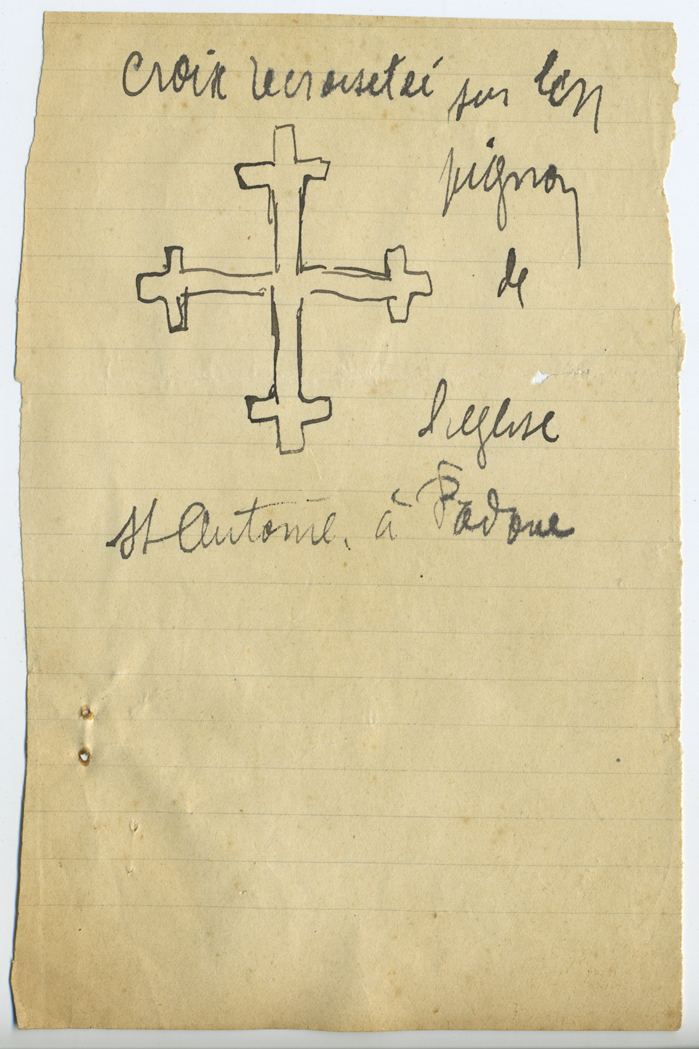 Croix recroisetée sur les
pignon
de
l'eglise
St Antoine, à Padoue